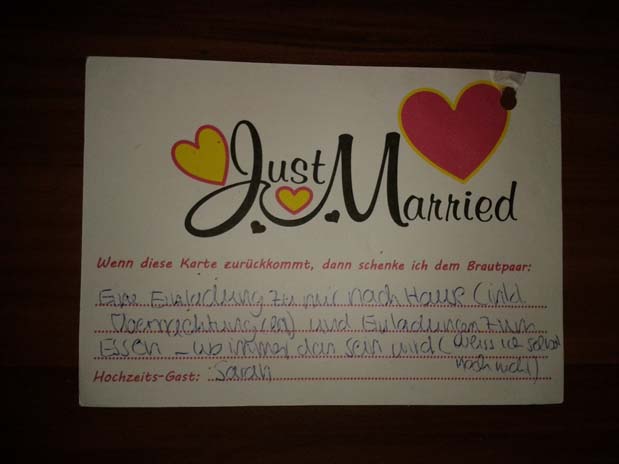 Just Married
Wenn diese Karte zurückkommt, dann schenke ich dem Brautpaar:
Eine Einladung zu mir nach Hause (inkl.
Übernachtung(en)) und Einladungen zum
Essen – wo immer das sein wird (weiss ich selbst
noch nicht)
Hochzeits-Gast: Sarah